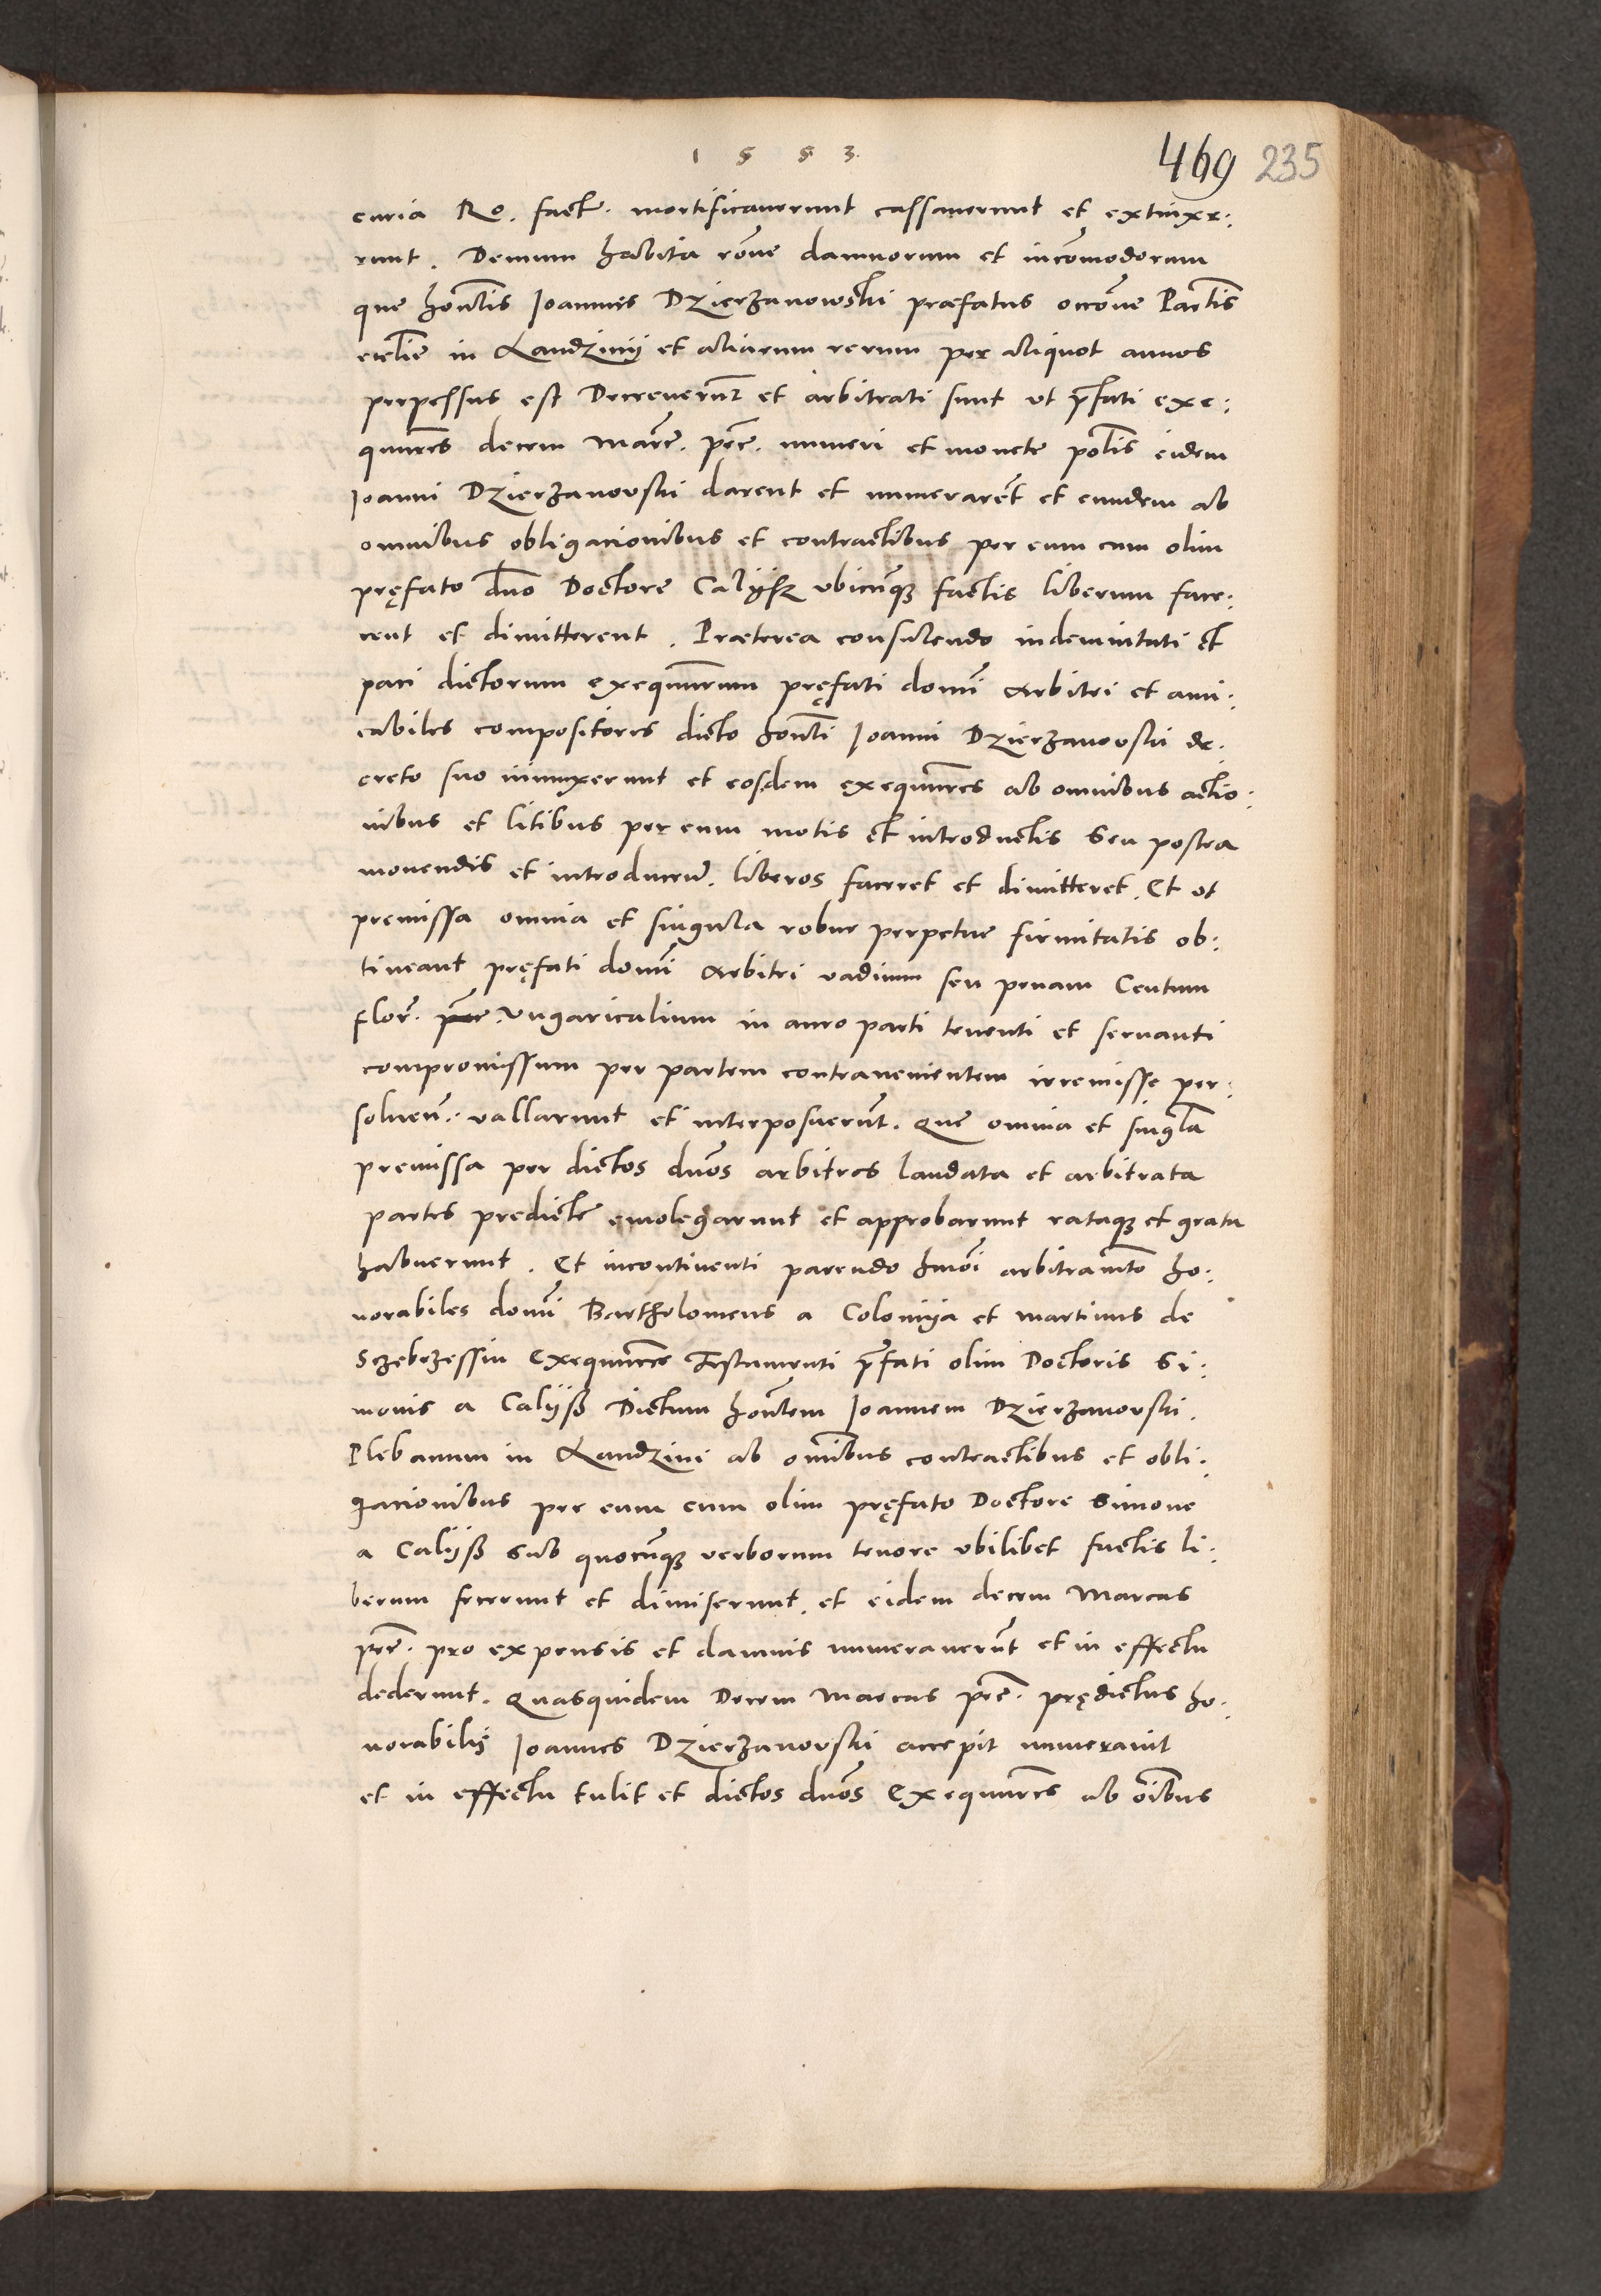 1553.
469 235
curia Ro. facte. mortificaverunt cassaverunt et extinxe:
runt. Demum habita rone damnorum et incomodorum
que honlis Ioannes Dzierzanowski præfatus occone Paclis
ecclie in Landzinij et aliarum rerum per aliquot annos
perpessus est Decreverunt et arbitrati sunt ut pfati exe:
qutores decem Marc. pec. numeri et monete polis eidem
Ioanni Dzierzanovski darent et numerarent et eundem ab
omnibus obligacionibus et contractibus per eum cum olim
pręfato dno Doctore Calijsz ubicunq factis liberum face:
rent et dimitterent. Præterea consulendo indemnitati et
paci dictorum exequutorum pręfati domi arbitri et ami:
cabiles compositores dicto honli Ioanni Dzierzanovski de:
creto suo iniunxerunt et eosdem exequutores ab omnibus actio:
nibus et litibus per eum motis et introductis seu postea
movendis et introducen. liberos faceret et dimitteret. Et ut
premissa omnia et singula robur perpetue firmitatis ob:
tineant pręfati domi arbitri vadium seu penam Centum
flor. Ungaricalium in auro parti tenenti et servanti
compromissum per partem contravenientem irremisse per:
solven. vallarunt et interposuerunt. Que omnia et singla
premissa per dictos dnos arbitros laudata et arbitrata
partes predicte emolegarunt et approbarunt rataq et grata
habuerunt. Et incontinenti parendo hmoi arbitramto ho:
norabiles domi Bartholomeus a Colomija et martinus de
Sczebrzessin Exequutores Testamenti pfati olim Doctoris Si:
monis a Calijsz Dictum honlem Ioannem Dzierzanovski.
Plebanum in Landzini ab omibus contractibus et obli:
gacionibus per eum cum olim pręfato Doctore Simone
a Calijsz sub quocunq verborum tenore ubilibet factis li:
berum fecerunt et dimiserunt. et eidem decem Marcas
pec. pro expensis et damnis numeraverunt et in effectu
dederunt. Quasquidem Decem Marcas pec. prędictus ho:
norabilis Ioannes Dzierzanovski accepit numeravit
et in effectu tulit et dictos dnos Exequutores ab oibus